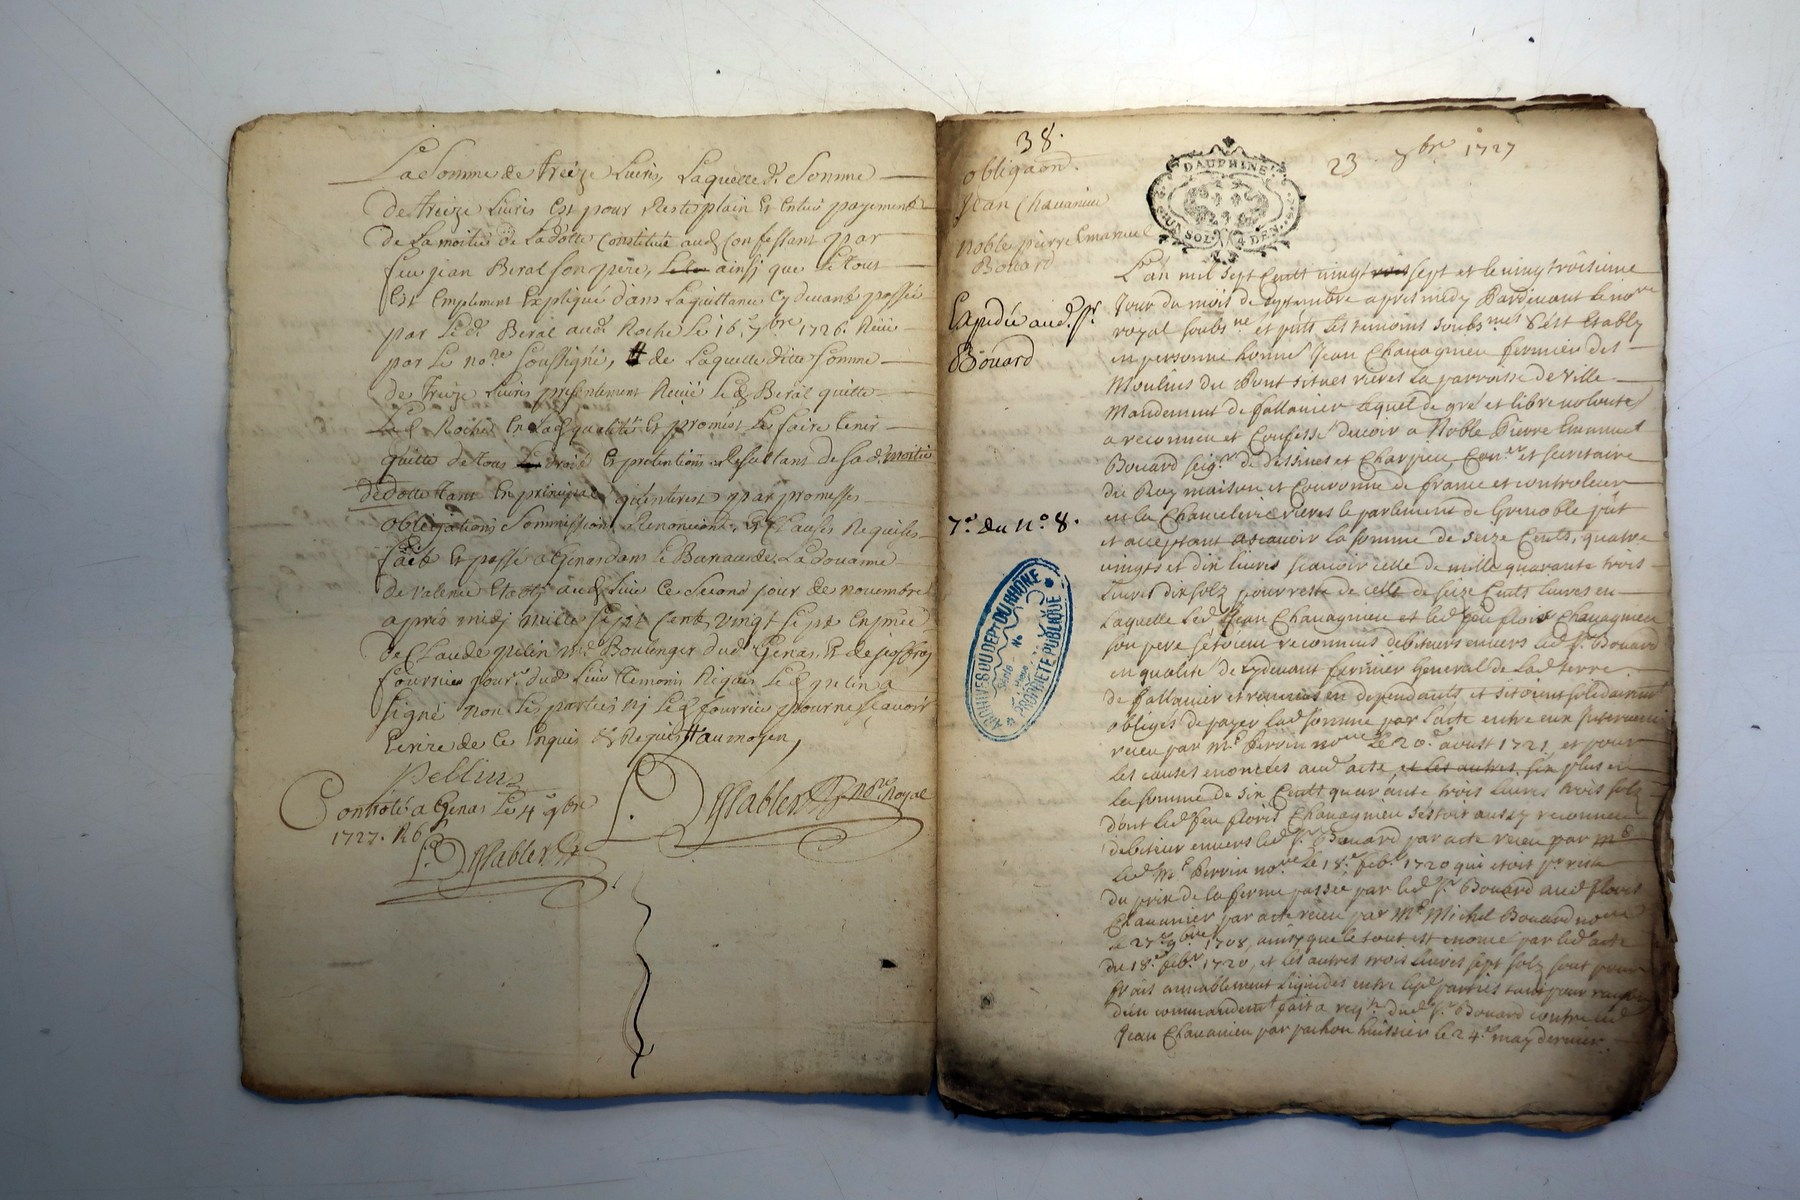 La Somme de treize Livres, Laquelle d. Somme
de treize Livres Est pour Reste plain Et Entier payement
de La moitié de La dotte Constituée aud. Confessant par
feu jean Beral son père, ainsi que Le tout
Est Emplement Expliqué dans La quittance Cy devant passée
par Le d. Beral aud. Roche Le 16e 7bre 1726. Reçue
par Le no.re soussigné, de Laquelle ditte somme
de treize Livres presentement Reçüe Led. Beral quitte
Led. Roche En lad. qualité Et promest Le faire tenir
quitte de tous droits Et pretentions Resultant de Sad. moitié
de dotte tant En principal qu'interest, par promesses
obligations Sommissions, Renonciations, Et Clauses Requises
fait Et passé a Genas dans Le Bureau de La doüanne
de valence aud. Lieu Ce Second jour de novembre
après midy mille Sept Cent vingt Sept En prnce
de Claude pelin Boulenger dud. Genas, Et de
fourrier dud. Lieu temoins Requis Led. pelin a
signé non Les parties nj Led. fourrier pour ne sçavoir
Ecrire de Ce Enquis Et Requis au moyen,
Pellin
Controlé a Genas Le 4 9bre
1727. R 6
nore Royal
38.
obligãon.
Jean Chavanieu
Noble pierre Emanuel
Bouard
Expedié aud. sr.
Bouard
7e. du No. 8.
ARCHIVES DU DEPT DU RHONE
PROPRIETE PUBLIQUE
DAUPHINE
UN SOL. 4 DEN.
23 7bre 1727
L'an mil sept Cents vingt sept et le vingt troisieme
Jour du mois de septembre apres midy Pardevant le nore
royal soubs.ne et pñts les temoins soubs.nes s'est Estably
en personne honnê Jean Chavagnieu fermier des
Moulins du Pont situes rieres la parroisse de Ville
Mandement de fallavier lequel de gré et libre volonté
a reconnu et Confessé devoir a Noble Pierre Emanuel
Bouard seigr. de dessines et Charpieu, Con.er et secretaire
du Roy maison et Couronne de france et controleur
en la Chancelerie rieres le parlement de Grenoble pñt
et acceptant ascavoir la somme de seize Cents, quatre
vingts et dix livres scavoir celle de mille quarante trois
livres dix solz pour reste de celle de seize Cents livres en
laquelle led. Jean Chavagnieu et led. feu floris Chavagnieu
son pere s'etoient reconnus debiteurs envers led. sr. Bouard
en qualité de cydevant fermier General de la terre
de fallavier et rentes en dependants et s'etoient solidairemt
obligés de payer lad. somme par l'acte entre eux Intervenu
receu par Me. Perrin nore le 20e. aoust 1721, et pour
les causes enoncées aud. acte, et les autres six plus en
la somme de six Cents quarante trois livres trois solz
dont led. feu floris Chavagnieu s'estoit aussy reconnu
debiteur envers led. sr. Bouard par acte receu par
led. Me. Perrin nore le 18e. feb. 1720 qui etoit pr. reste
du prix de la ferme passée par led. sr. Bouard aud. floris
Chavanier par acte receu par Me. Michel Bouard nore
le 27e. 9bre 1708, ainsy que le tout est enoncé par led. acte
du 18e. feb. 1720, et les autres trois livres sept solz sont pour
frais amiablement liquidés entre lesd. parties tant pour
d'un commandement fait a reqte. dud. sr. Bouard contre led.
Jean Chavanieu par pachou huissier le 24e. may dernier.